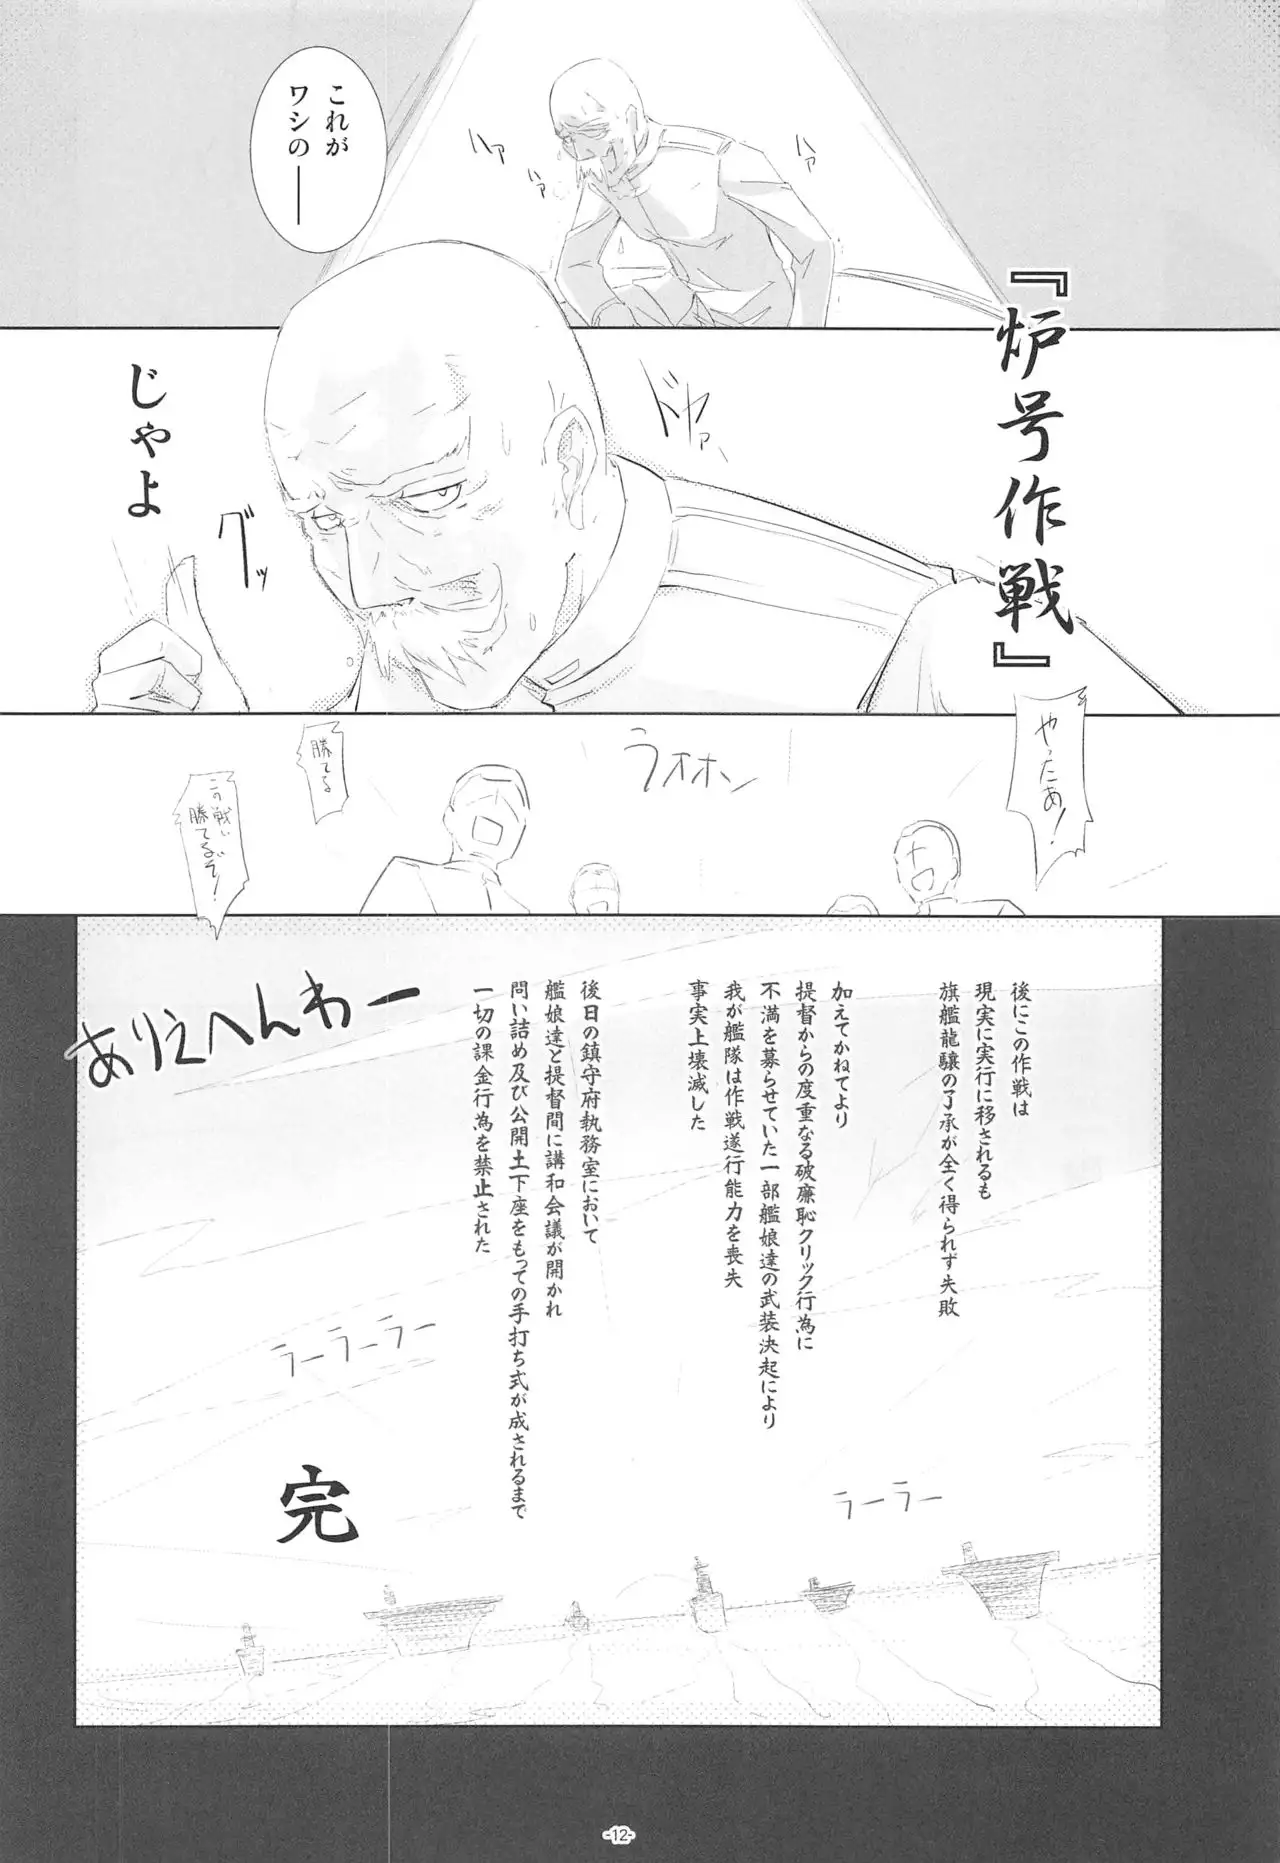 これが
ワシの――
ハァ
ハァ
ハァ
『炉号作戦』
じゃよ
ドヤァ
グッ
やったあ!
ラオホン
勝てる
この戦い
勝てるぞ!
後にこの作戦は
現実に実行に移されるも
旗艦龍驤の了承が全く得られず失敗
加えてかねてより
提督からの度重なる破廉恥クリック行為に
不満を募らせていた一部艦娘達の武装決起により
我が艦隊は作戦遂行能力を喪失
事実上壊滅した
後日の鎮守府執務室において
艦娘達と提督間に講和会議が開かれ
問い詰め及び公開土下座をもっての手打ち式が成されるまで
一切の課金行為を禁止された
ありえへんわー
ラーラーラー
ラーラー
完
-12-